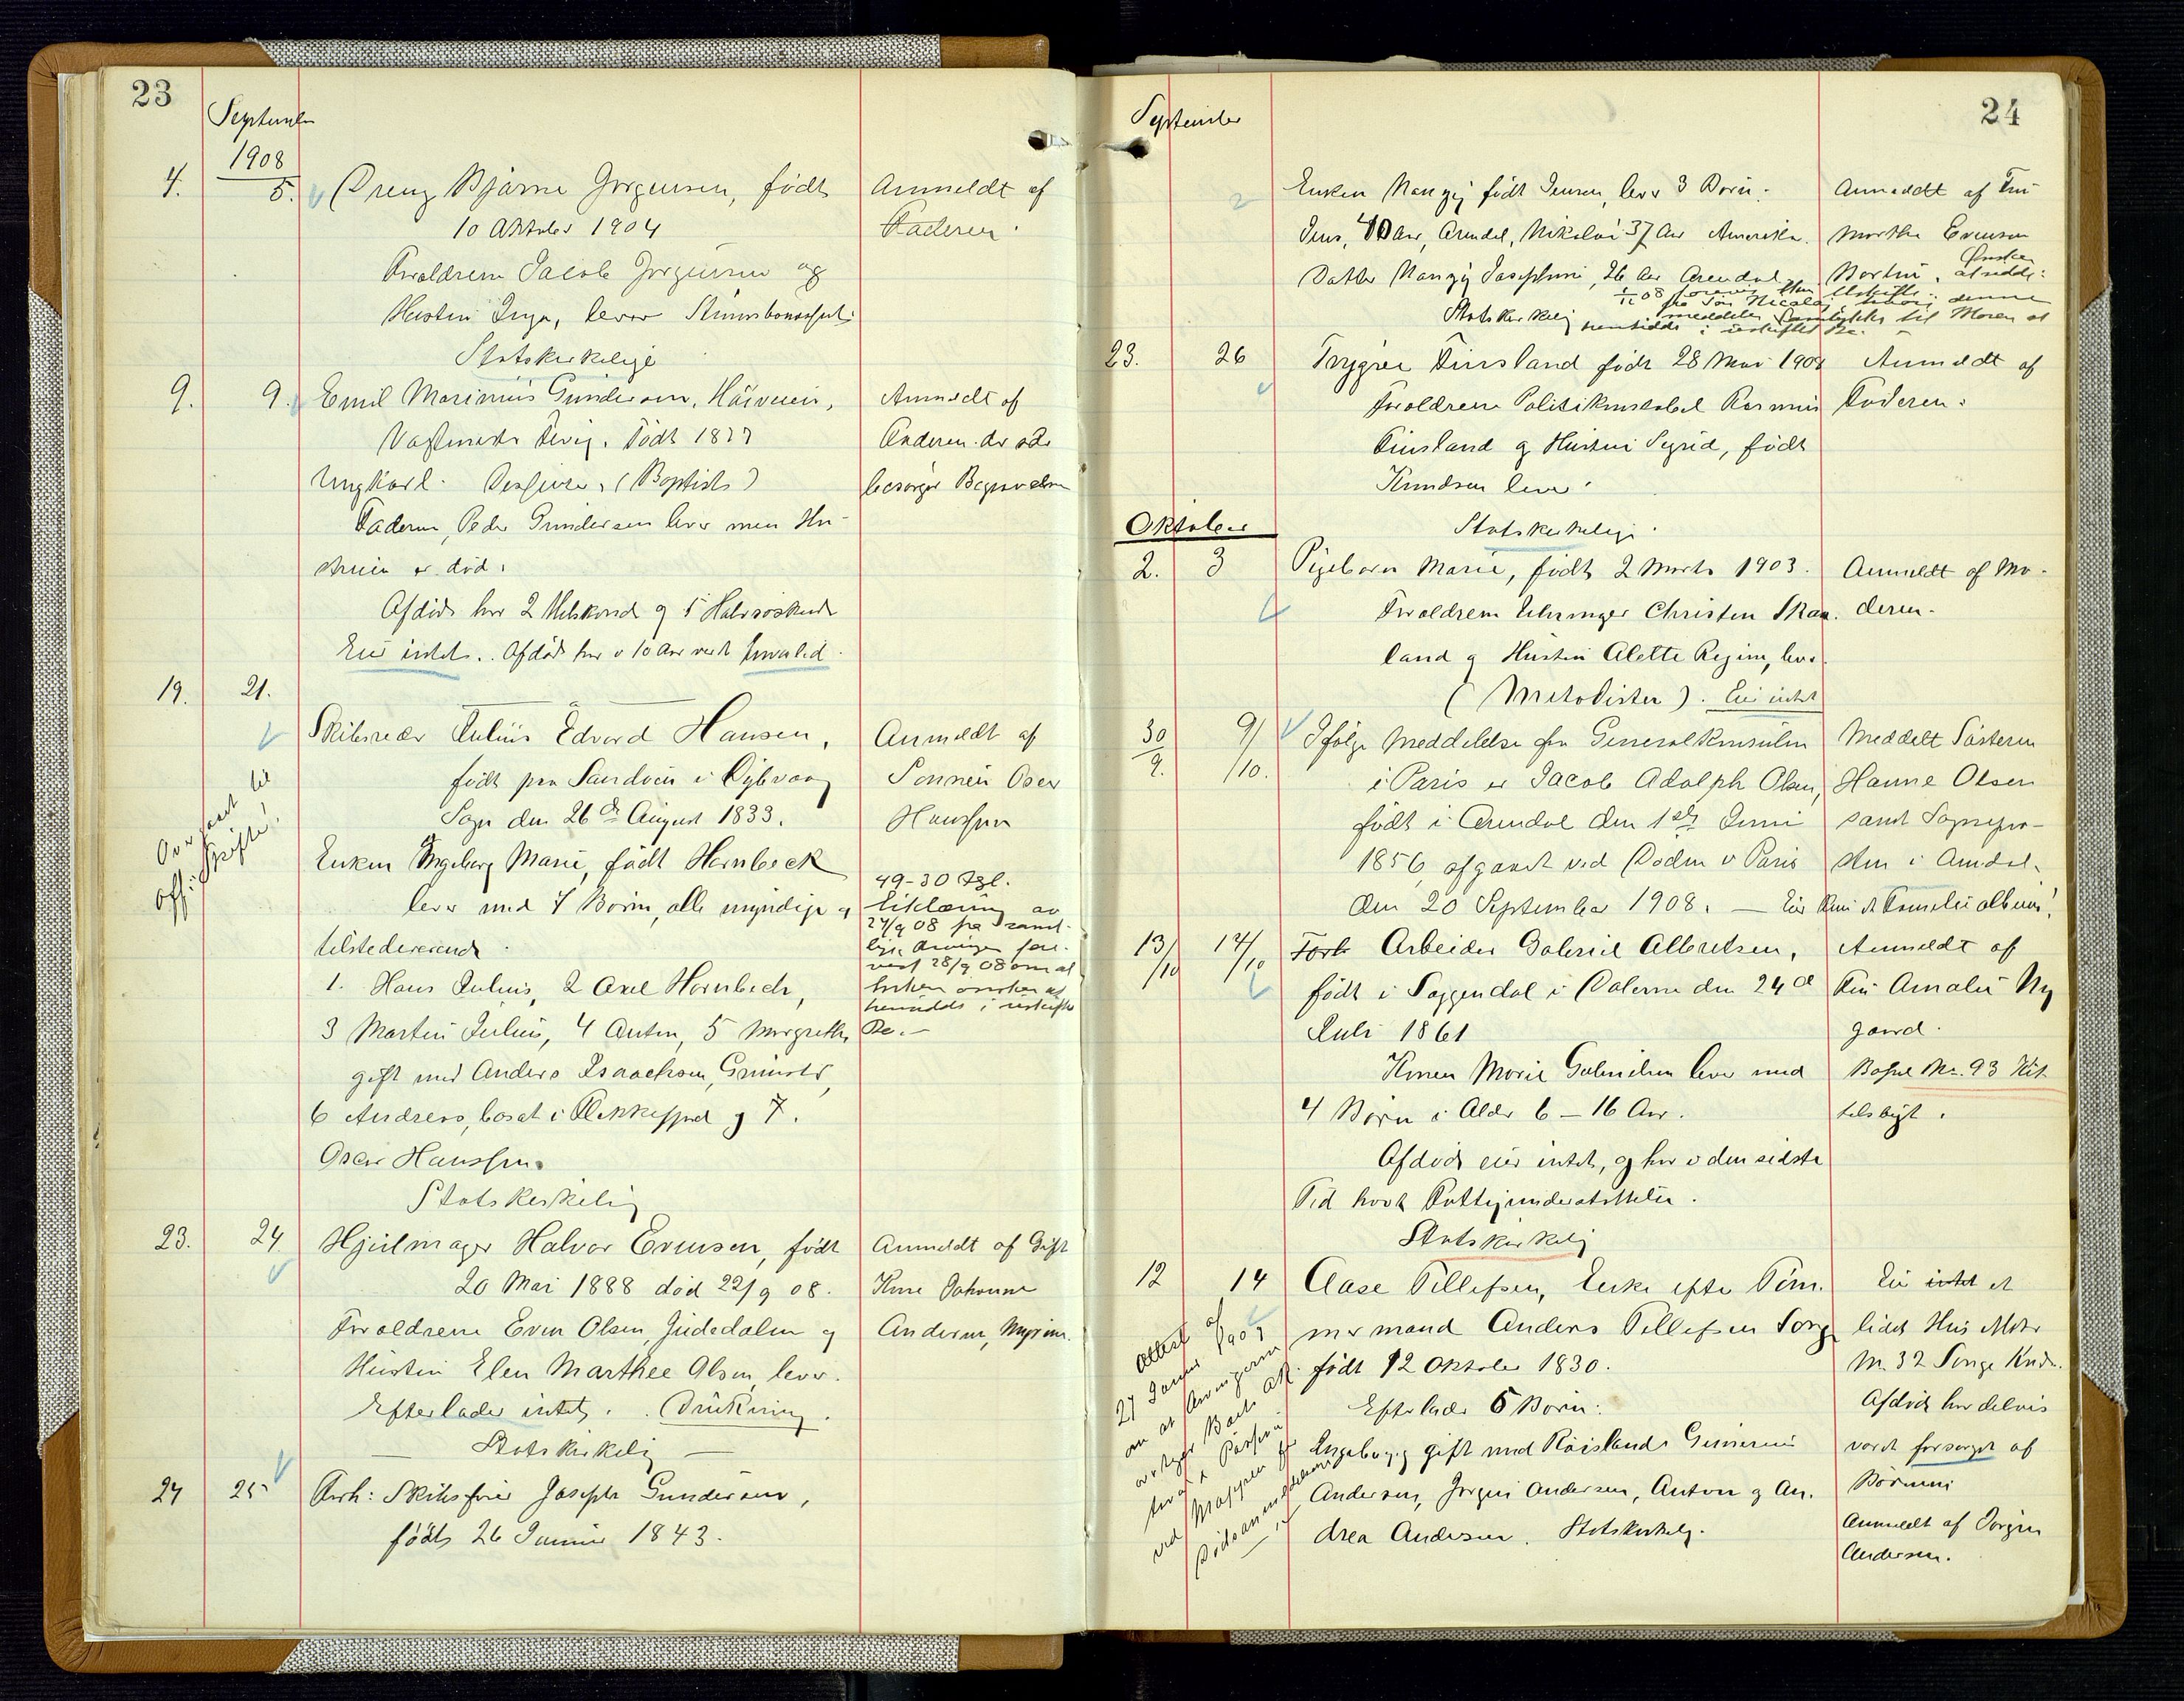 23
September
1908
4. 5. Dreng Bjarne Jørgensen, født
10 Oktober 1904
Forældrene Jacob Jørgensen og
Hustru Inga, lever
Statskirkelige
Anmeldt af
Faderen.
9. 9. Emil Marinius Gundersen,
født 1877
Ungkarl. (Baptist)
Faderen, Peder Gundersen lever men Hu-
struen er død.
Afdøde har 2 Helsøsk og 5 Halvsøskende
Eier intet. Afdøde har i 10 Aar vært Invalid.
Anmeldt af
besørger Begravelsen
19. 21.
Skibsreder Julius Edvard Hansen,
født paa Sandøen i Dybvaag
Sogn den 26de August 1833.
Enken Ingeborg Marie, født Hornbeck
lever med 7 Børn, alle myndige og
tilstedeværende.
1. Hans Julius, 2 Axel Hornbeck,
3 Martin Julius, 4 Anton, 5 Margrethe,
gift med Anders Isaachsen, Grimstad,
6 Andreas, bosat i Flekkefjord og 7.
Oscar Hanssen.
Statskirkelig
Anmeldt af
Sønnen Oscar
Hanssen
49-30 Tgl.
Erklæring av
24/9 08 fra samt-
lige Arvinger fore-
vist 28/9 08 om at
Enken ønsker at
hensidde i uskiftet
Bo.-
Overført til
off: Skifte!
23. 24 Hjulmager Halvor Evensen, født
20 Mai 1888 død 22/9 08.
Forældrene Even Olsen, og
Hustru Elen Marthee Olsen, lever.
Efterlader intet. Drukning.
Statskirkelig
Anmeldt af Gift
Kone Johanne
Andersen, Myrene.
24 25 Forh: Skibsfører Joseph Gundersen,
født 26 Januar 1843.
September
24
Enken født Jensen, lever 3 Børn:
Jens, 40 Aar, Arendal, Nikolai 37 Aar Amerika.
Datter Josephine, 26 Aar Arendal
Statskirkelig
Anmeldt af Fru
Marthe Evensen
Ønsker
at sidde
hensidde i uskiftet Bo.
23. 26 Trygve Finsland født 28 Mai 1908
Forældrene Politikonstabel Rasmus
Finsland og Hustru Sigrid, født
Knudsen lever.
Statskirkelige.
Anmeldt af
Faderen.
Oktober
2. 3 Pigebarn Marie, født 2 Marts 1903.
Forældrene Christen Skaa-
land og Hustru Alette Regine, lever.
(Metodister). Eier intet
Anmeldt af Mo-
deren.
30/9. 9/10. Ifølge Meddelelse fra Generalkonsulen
i Paris er Jacob Adolph Olsen,
født i Arendal den 1ste Juni
1856, afgaaet ved Døden i Paris
den 20 September 1908. — Eier kun et Familiealbum!
Meddelt Søsteren
Hanne Olsen
samt Sognepre-
sten i Arendal.
13/10 14/10 Forh Arbeider Gabriel Albretsen,
født i Soggendal i Dalerne den 24de
Juli 1861
Konen Marie Gabrielsen lever med
4 Børn i Alder 6 — 16 Aar.
Afdøde eier intet, og har i den sidste
Tid havt Fattigunderstøttelse.
Statskirkelig
Anmeldt af
Fru Amalie Ny
gaard.
Bopæl Nr. 93 Kit
telsbugt.
12 14 Aase Tellefsen, Enke efter Tøm-
mermand Anders Tellefsen Songe
født 12 Oktober 1830.
Efterlader 5 Børn:
Ingeborg, gift med
Andersen, Jørgen Andersen, Anton og An-
drea Andersen. Statskirkelig.
Eier intet et
lidet Hus Matr
Nr. 32 Songe
Afdøde har delvis
været forsørget af
Børnene
Anmeldt af Jørgen
Andersen.
Attest af
27 Januar 1909
om at Arvingerne
overtager Boet